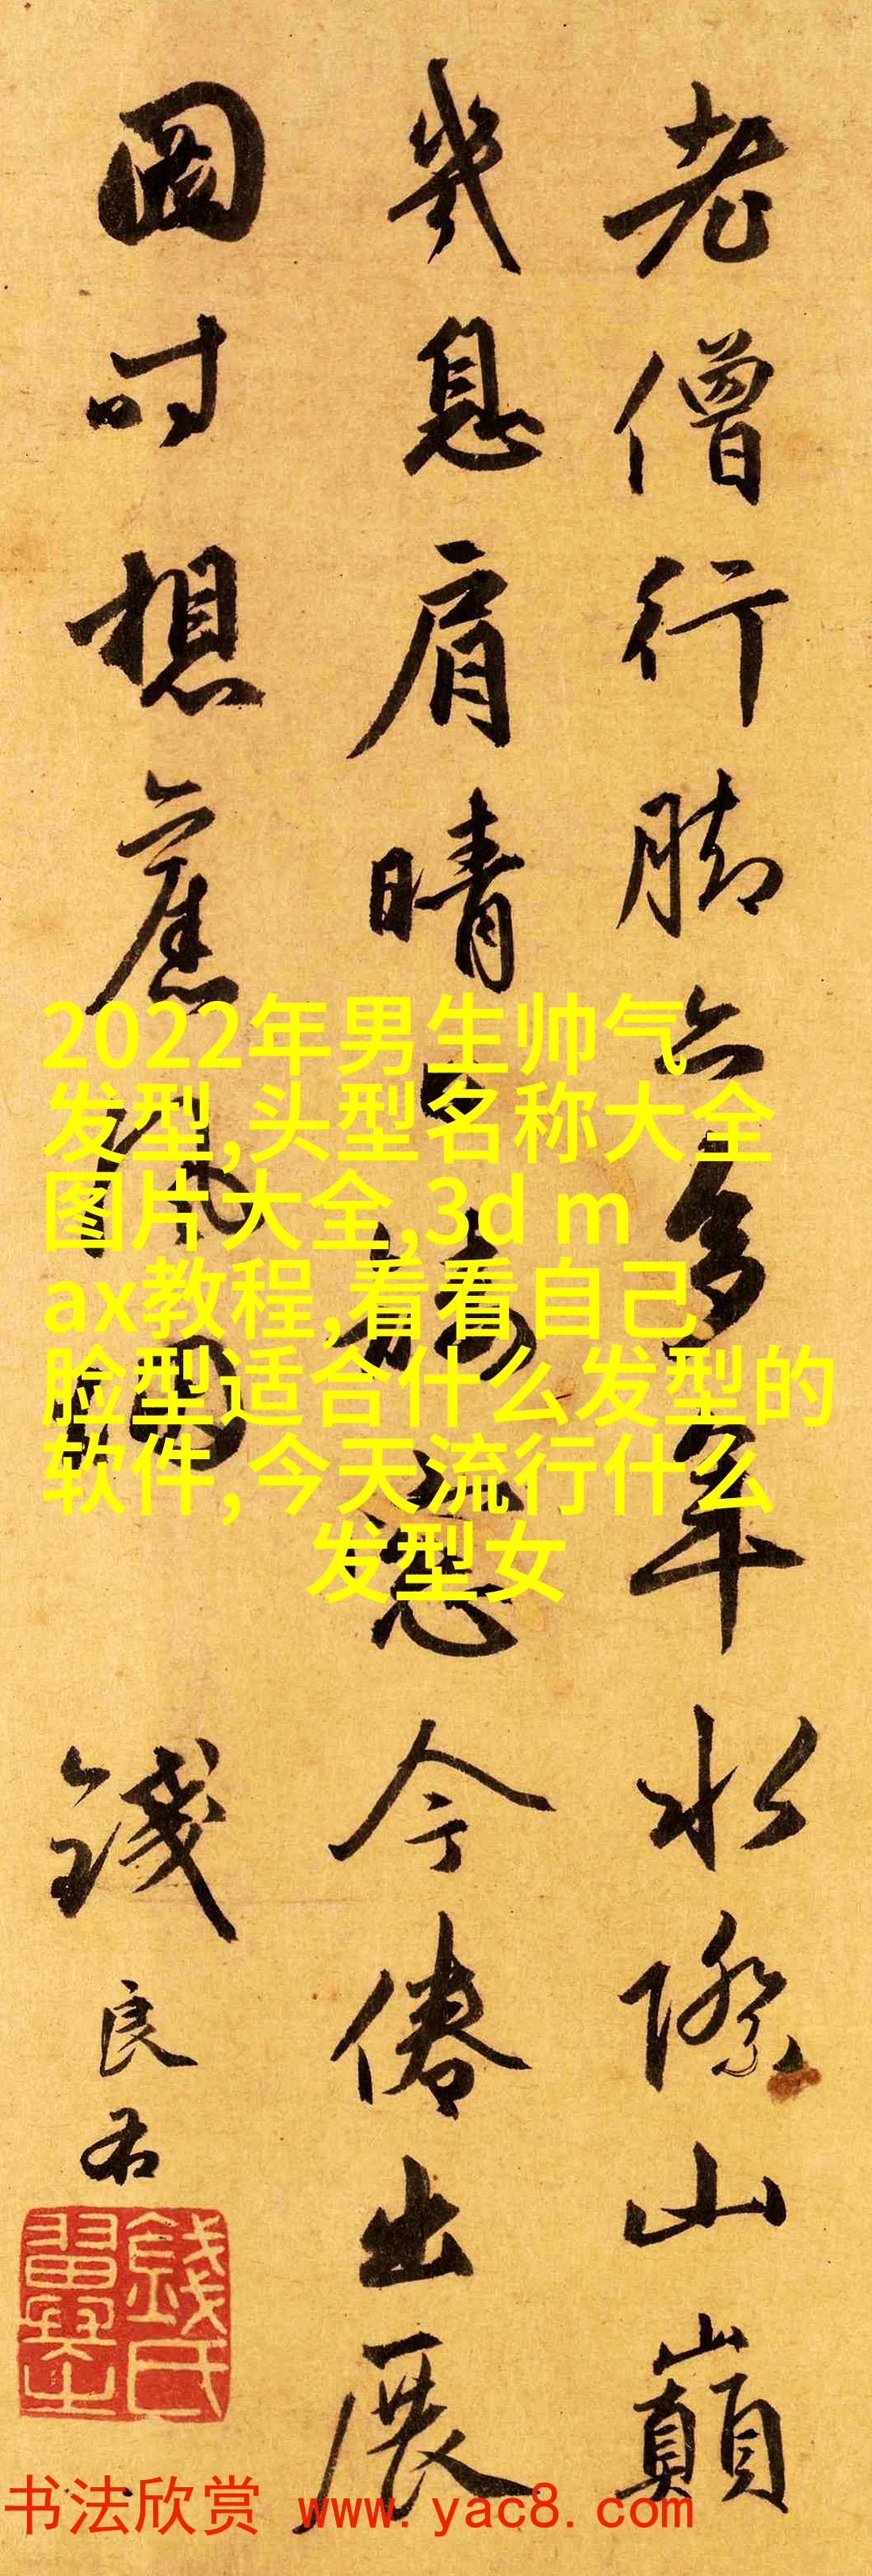 老僧行脚亦多年水際山巔
幾息肩晴
今倦出展
圖時想舊
錢
良右
錢氏
2022年男生帅气
发型,头型名称大全
图片大全,3d m
ax教程,看看自己
脸型适合什么发型的
软件,今天流行什么
发型女
书法欣赏 www.yac8.com